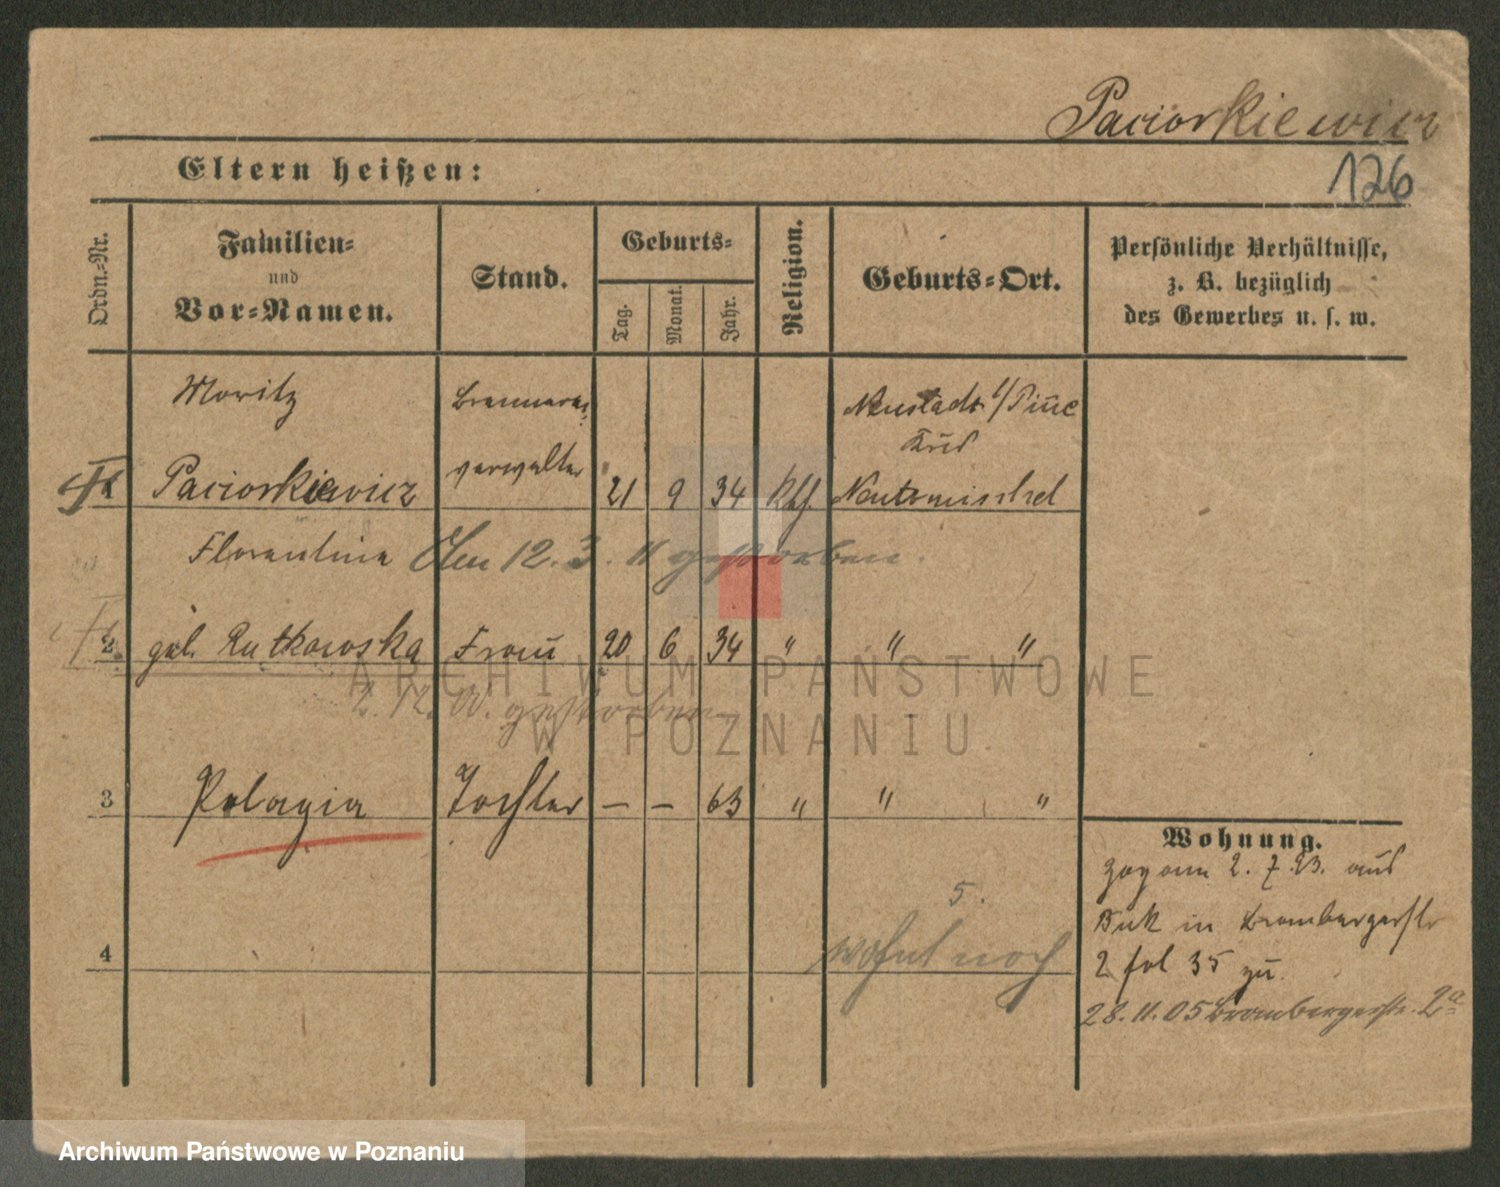 Paciorkiewicz
126
Eltern heißen:
Ordn.-Nr.
Familien-
und
Vor-Namen.
Stand.
Geburts-
Tag.
Monat.
Jahr.
Religion.
Geburts-Ort.
Persönliche Verhältnisse,
z. B. bezüglich
des Gewerbes u. s. w.
Moritz
Brennerei-
Neustadt b/Pinne
verwalter
Paciorkiewicz
21 9 34 kth. Neutomischel
Florentine Am 12.3.11 gestorben.
2 geb. Rutkowska Frau 20 6 34 " " "
gestorben
ARCHIWUM PAŃSTWOWE
W POZNANIU
3 Pelagia Tochter — — 63 " " "
Wohnung.
zog am 2.7.93. aus
Buk in Brombergerstr
5.
4 wohnt noch
2 fol 35 zu.
28.11.05 Brombergerstr. 2a
Archiwum Państwowe w Poznaniu